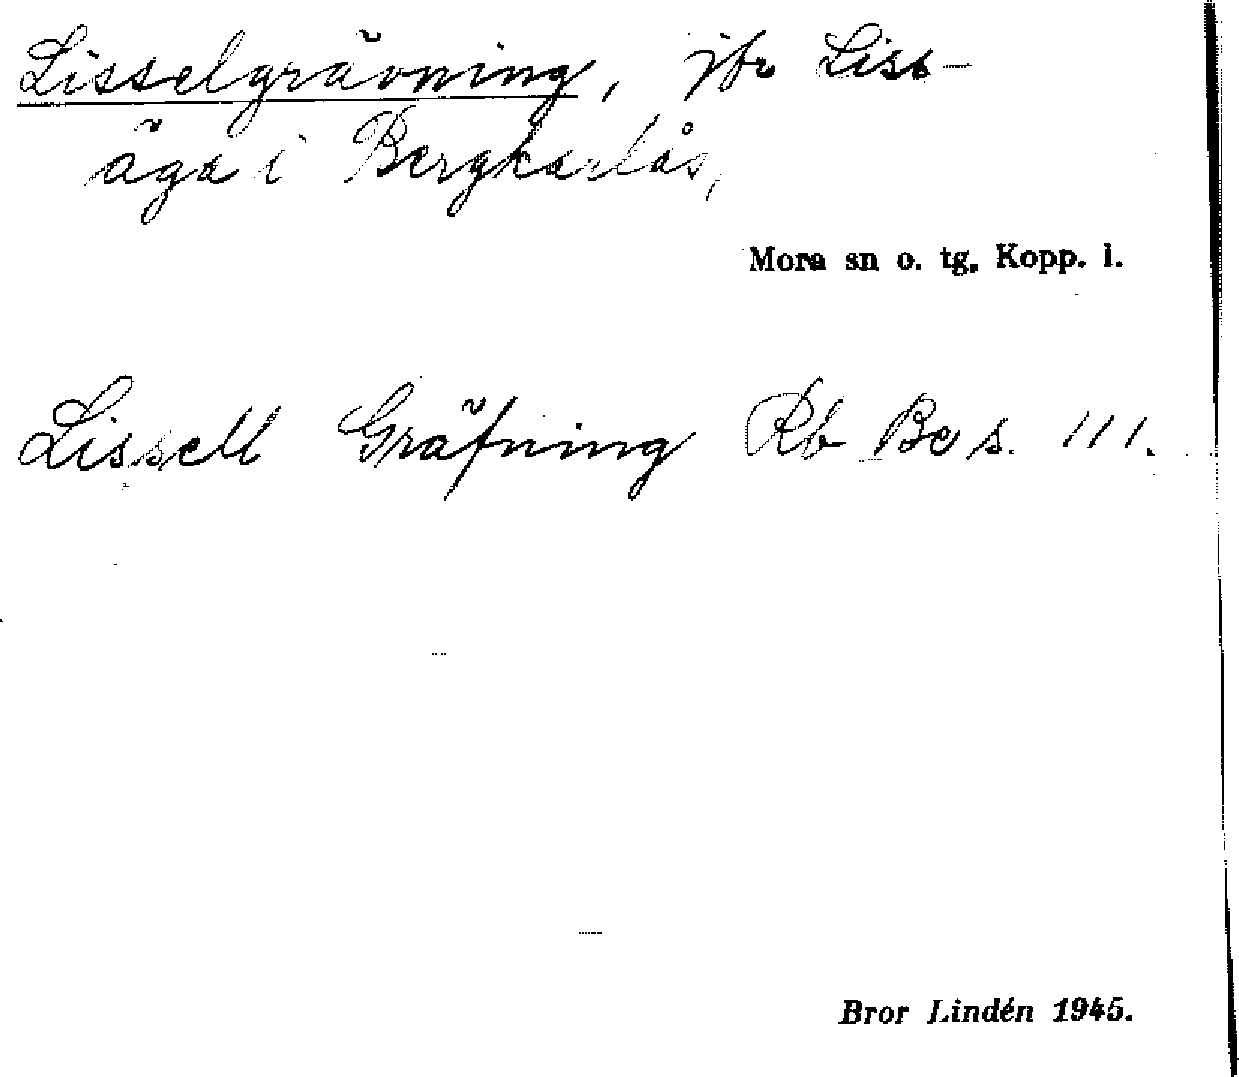 Lisselgrävning, jfr Liss-
äga i Bergkarlås,
Mora sn o. tg. Kopp. l.
Lissell Gräfning Rb Be s. 111.
Bror Lindén 1945.